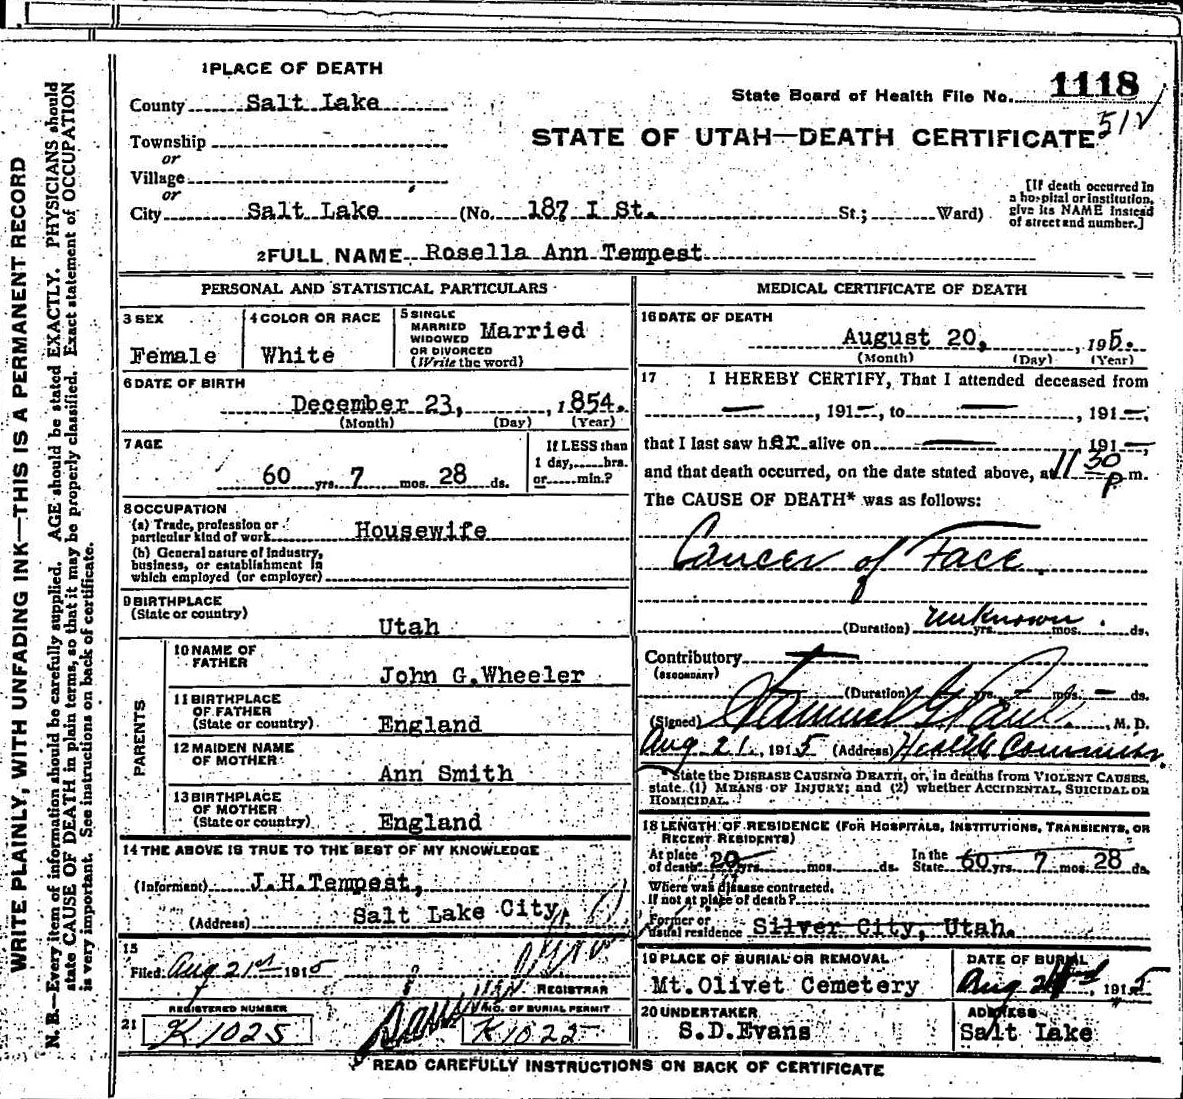 WRITE PLAINLY, WITH UNFADING INK—THIS IS A PERMANENT RECORD
N. B.—Every item of information should be carefully supplied. AGE should be stated EXACTLY. PHYSICIANS should
state CAUSE OF DEATH in plain terms, so that it may be properly classified. Exact statement of OCCUPATION
is very important. See instructions on back of certificate.
1 PLACE OF DEATH
County Salt Lake
State Board of Health File No. 1118
51V
Township
or
STATE OF UTAH—DEATH CERTIFICATE
Village
or
City Salt Lake (No. 187 I St. St.; Ward)
[If death occurred in
a hospital or institution,
give its NAME instead
of street and number.]
2 FULL NAME Rosella Ann Tempest
PERSONAL AND STATISTICAL PARTICULARS
3 SEX
Female
4 COLOR OR RACE
White
5 SINGLE
MARRIED
WIDOWED
OR DIVORCED
(Write the word)
Married
6 DATE OF BIRTH
December 23, 1854.
(Month) (Day) (Year)
7 AGE
60 yrs. 7 mos. 28 ds.
If LESS than
1 day, hrs.
or min.?
8 OCCUPATION
(a) Trade, profession or
particular kind of work Housewife
(b) General nature of Industry,
business, or establishment in
which employed (or employer)
9 BIRTHPLACE
(State or country)
Utah
PARENTS
10 NAME OF
FATHER
John G.Wheeler
11 BIRTHPLACE
OF FATHER
(State or country) England
12 MAIDEN NAME
OF MOTHER
Ann Smith
13 BIRTHPLACE
OF MOTHER
(State or country) England
14 THE ABOVE IS TRUE TO THE BEST OF MY KNOWLEDGE
(Informant) J.H.Tempest,
(Address) Salt Lake City,
15
Filed Aug 21st 1915
REGISTRAR
21
REGISTERED NUMBER
K 1025
NO. OF BURIAL PERMIT
K 1022
MEDICAL CERTIFICATE OF DEATH
16 DATE OF DEATH
August 20, 1915.
(Month) (Day) (Year)
17 I HEREBY CERTIFY, That I attended deceased from
—, 191—, to —, 191—,
that I last saw her alive on — 191—,
and that death occurred, on the date stated above, at 11 30 P m.
The CAUSE OF DEATH* was as follows:
Cancer of Face.
(Duration) unknown. yrs. mos. ds.
Contributory —
(SECONDARY)
(Duration) yrs. — mos. — ds.
(Signed) Samuel G Paul. M. D.
Aug 21, 1915 (Address) Health Commisr.
*State the DISEASE CAUSING DEATH, or, in deaths from VIOLENT CAUSES,
state (1) MEANS OF INJURY; and (2) whether ACCIDENTAL, SUICIDAL OR
HOMICIDAL.
18 LENGTH OF RESIDENCE (FOR HOSPITALS, INSTITUTIONS, TRANSIENTS, OR
RECENT RESIDENTS)
At place
of death 20 yrs. mos. ds. In the
State 60 yrs. 7 mos. 28 ds.
Where was disease contracted,
If not at place of death?
Former or
usual residence Silver City, Utah.
19 PLACE OF BURIAL OR REMOVAL
Mt.Olivet Cemetery
DATE OF BURIAL
Aug 1915
20 UNDERTAKER
S.D.Evans
ADDRESS
Salt Lake
READ CAREFULLY INSTRUCTIONS ON BACK OF CERTIFICATE